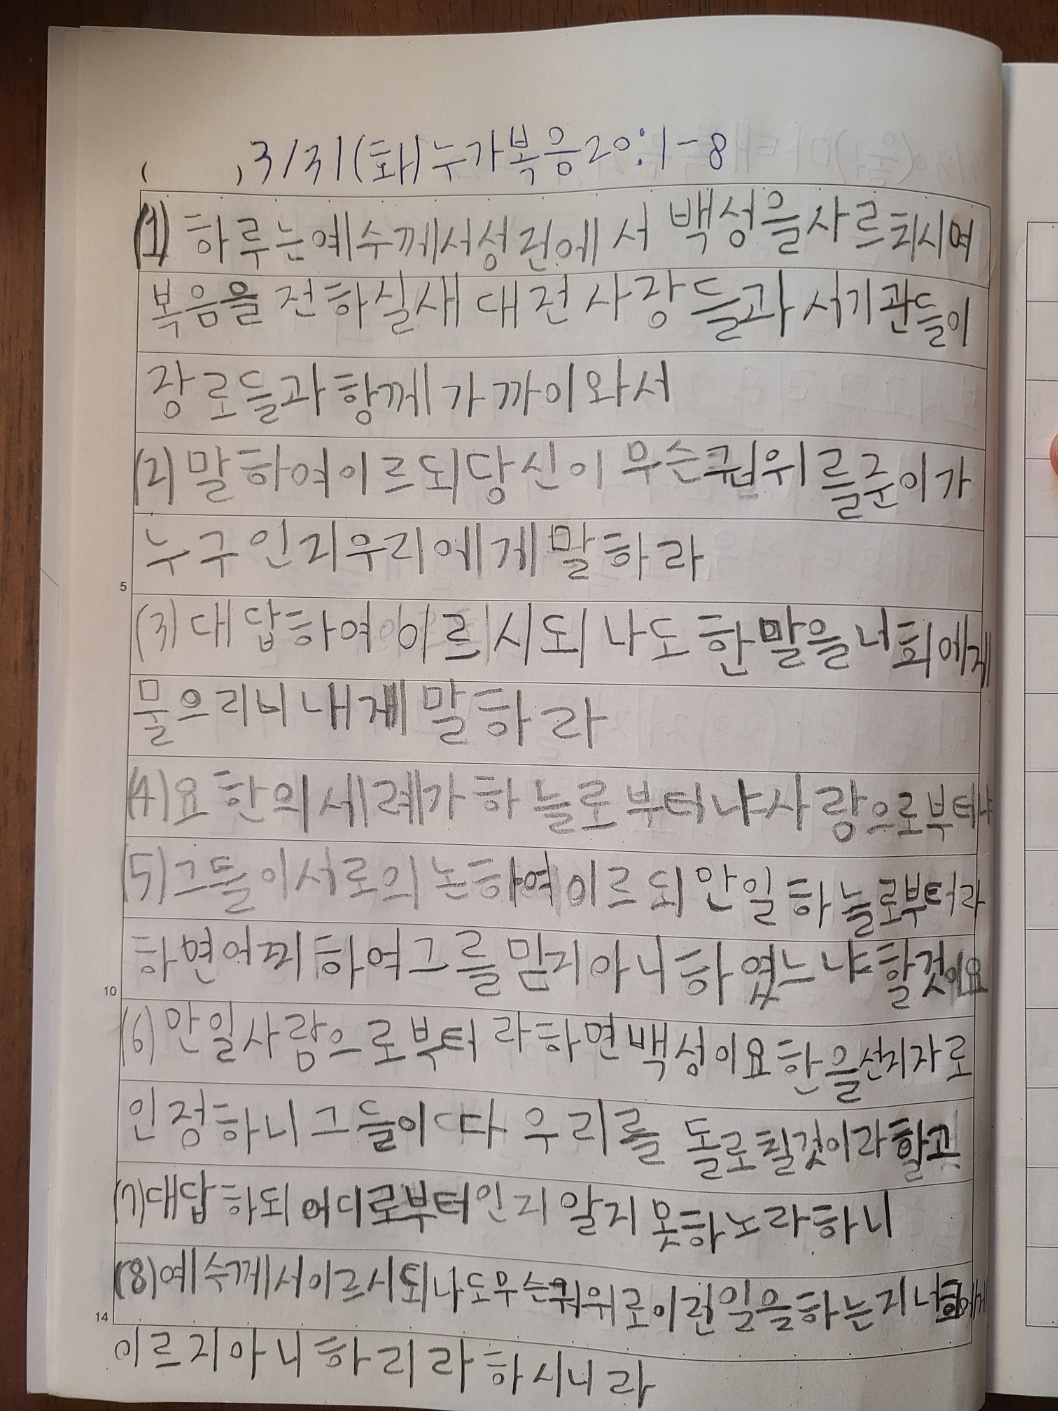 3/31(화)누가복음20:1-8
(1) 하루는예수께서성전에서 백성을사르치시며
복음을 전하실새 대전사장들과 서기관들이
장로들과함께 가까이와서
(2) 말하여이르되당신이 무슨권위를준이가
누구인지우리에게말하라
(3) 대답하여이르시되 나도한말을너희에게
물으리니내게말하라
(4) 요한의세례가하늘로부터냐사람으로부터냐
(5) 그들이서로의논하여이르되 만일하늘로부터라
하면어찌하여그를믿지아니하였느냐할것이요
(6) 만일사람으로부터 라하면백성이요한을선지자로
인정하니그들이다 우리를 돌로칠것이라하고
(7)대답하되어디로부터인지알지못하노라하니
(8)예수께서이르시되나도무슨권위로이런일을하는지너희에게
이르지아니하리라하시니라
5
10
14